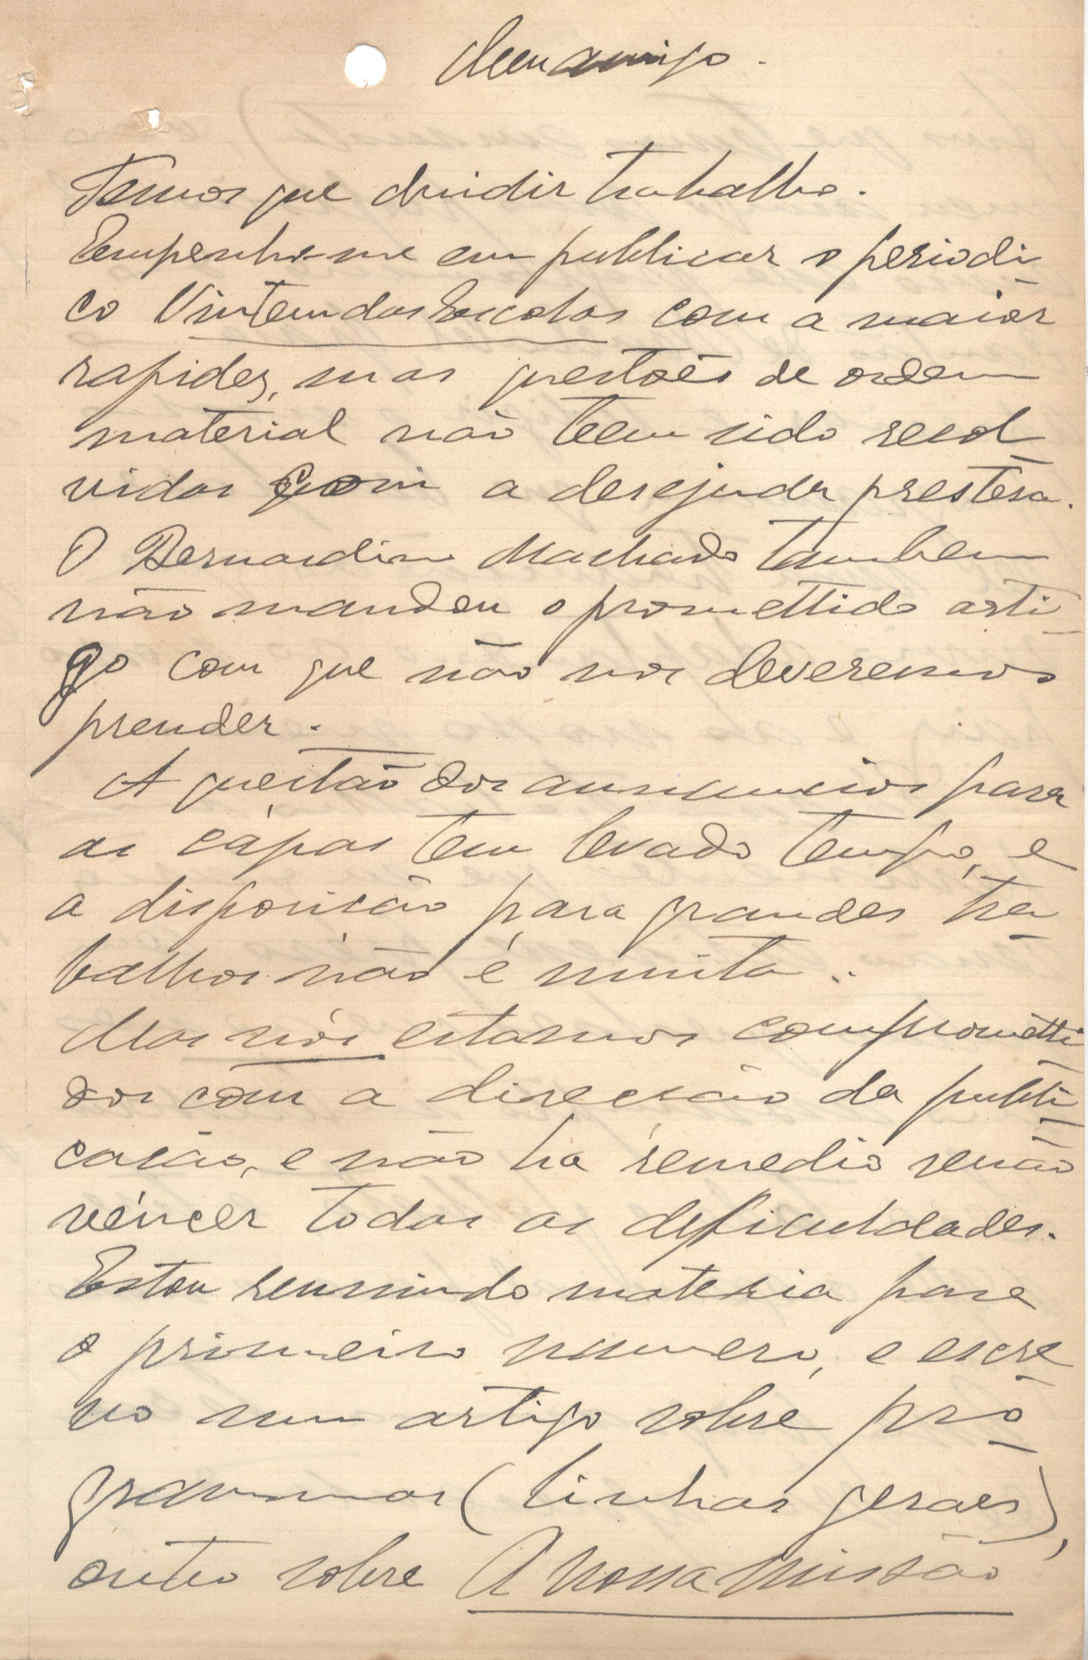 Meu amigo.
Temos que dividir trabalho.
Empenho-me em publicar o periodi
co Vintem das Escolas com a maior
rapidez, mas questões de ordem
material não teem sido resol-
vidas com a desejada presteza.
O Bernardino Machado tambem
não mandou o promettido arti-
go com que não nos deveremos
prender.
A questão dos annuncios para
as capas tem levado tempo, e
a disposição para grandes tra-
balhos não é muita.
Mas nós estamos compromètti-
dos com a direcção da publi-
cação, e não ha remedio senão
vencer todas as deficuldades.
Estou reunindo materia para
o primeiro numero, e escre-
vo um artigo sobre pro-
grammas (linhas geraes),
outro sobre A nossa missão